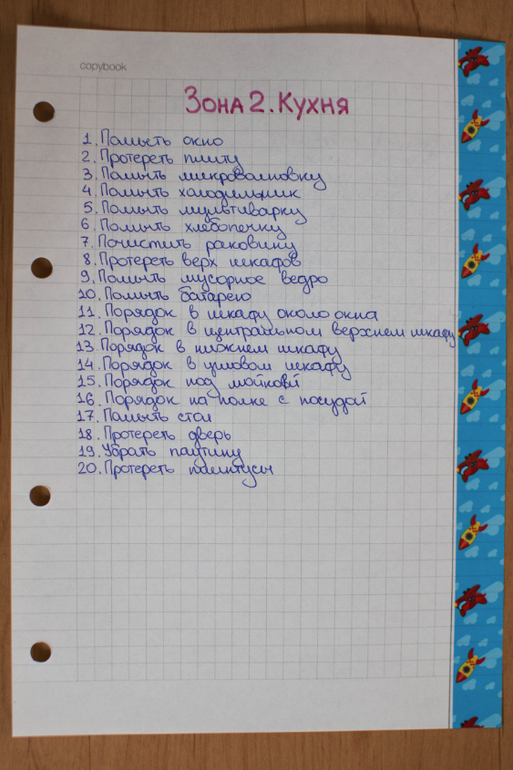 copybook
Зона 2. Кухня
1. Помыть окно
2. Протереть плиту
3. Помыть микроволновку
4. Помыть холодильник
5. Помыть мультиварку
6. Помыть хлебопечку
7. Почистить раковину
8. Протереть верх шкафов
9. Помыть мусорное ведро
10. Помыть батарею
11. Порядок в шкафу около окна
12. Порядок в центральном верхнем шкафу
13. Порядок в нижнем шкафу
14. Порядок в угловом шкафу
15. Порядок под мойкой
16. Порядок на полке с посудой
17. Помыть стол
18. Протереть дверь
19. Убрать паутину
20. Протереть плинтусы